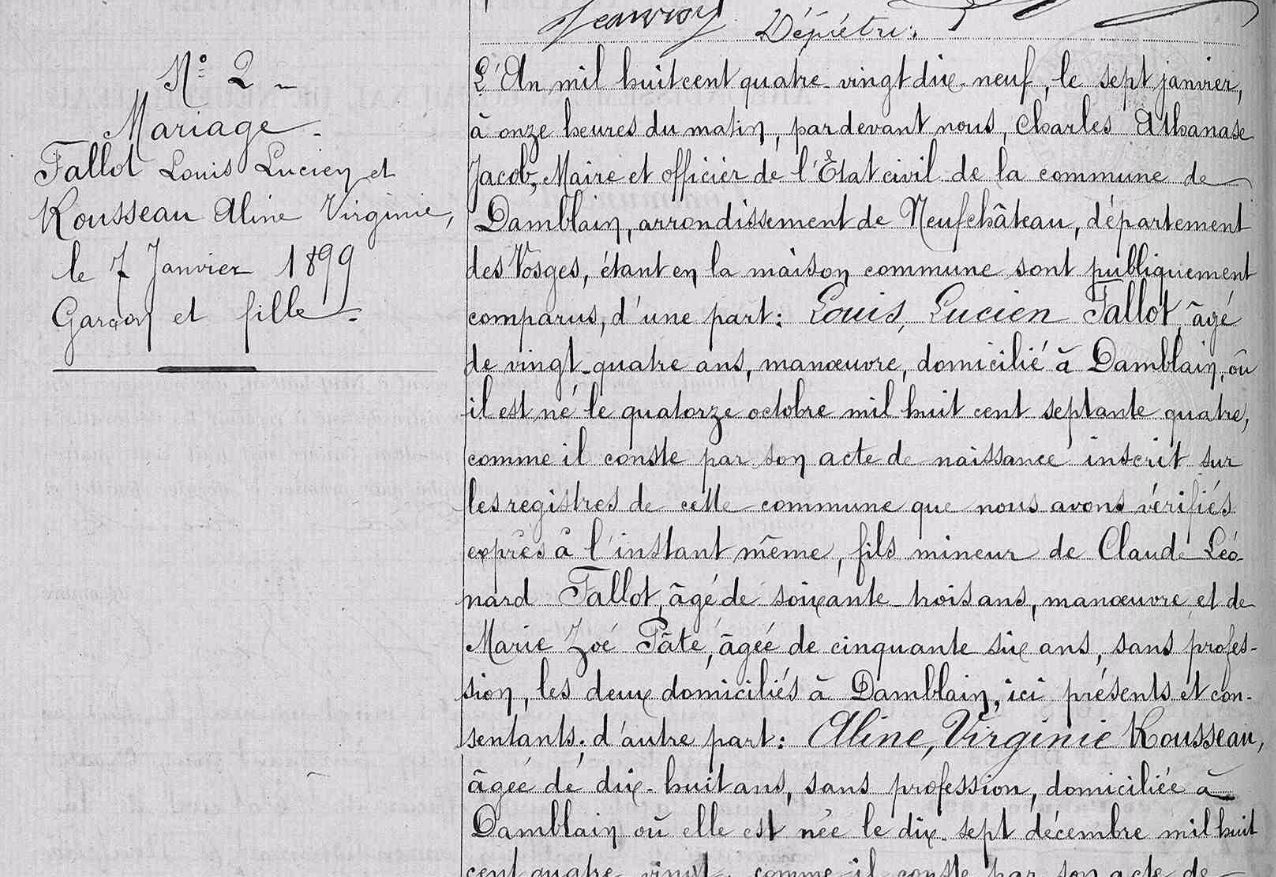 Depiétri
Nº 2
Mariage
Fallot Louis Lucien et
Rousseau Aline Virginie,
le 7 Janvier 1899
Garçon et fille
L'An mil huit cent quatre vingt dix neuf, le sept janvier,
à onze heures du matin, pardevant nous, Charles Athanase
Jacob, Maire et officier de l'État civil de la commune de
Damblain, arrondissement de Neufchâteau, département
des Vosges, étant en la maison commune sont publiquement
comparus, d'une part: Louis, Lucien Fallot, âgé
de vingt-quatre ans, manœuvre, domicilié à Damblain, où
il est né le quatorze octobre mil huit cent septante quatre,
comme il conste par son acte de naissance inscrit sur
les registres de cette commune que nous avons vérifiés
exprès à l'instant même, fils mineur de Claude Léo-
nard Fallot, âgé de soixante trois ans, manœuvre et de
Marie Zoé Pâté, âgée de cinquante six ans, sans profes-
sion, les deux domiciliés à Damblain, ici présents et con-
sentants. d'autre part: Aline, Virginie Rousseau,
âgée de dix-huit ans, sans profession, domiciliée à
Damblain où elle est née le dix-sept décembre mil huit
cent quatre vingt, comme il conste par son acte de